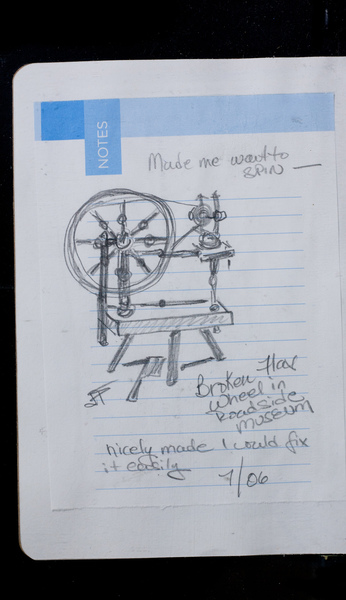 NOTES
Made me want to
SPIN —
Broken Flax
Wheel in
Roadside
Museum
nicely made I could fix
it easily
7/06